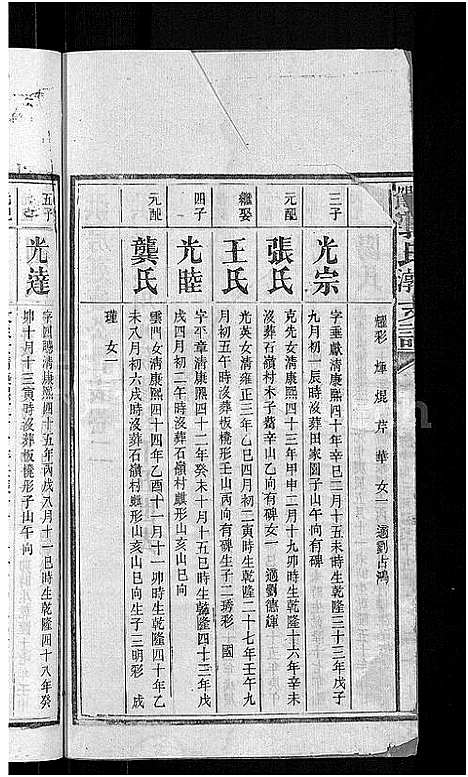 李氏
耀彩 煇 焜 芹 華 女一 適劉占鴻
三子
光宗
字垂獻清康熙四十年辛巳二月十五未時生乾隆三十三年戊子
九月初一辰時沒葬田家園子山午向
元配
張氏
克先女清康熙四十三年甲申二月十九卯時生乾隆十六年辛未
沒葬石嶺村木子觜辛山乙向有碑女一 適劉德輝
繼娶
王氏
光英女清雍正三年乙巳四月初二寅時生乾隆二十七年壬午九
月初五午時沒葬板橋形壬山丙向有碑生子二琇彩 國
四子
光睦
字平章清康熙四十二年癸未十月十五巳時生乾隆四十三年戊
戌四月初二午時沒葬石嶺村麒形山亥山巳向
元配
龔氏
雲門女清康熙四十四年乙酉十一月十一卯時生乾隆四十年乙
未八月初六戌時沒葬石嶺村麒形山亥山巳向生子三明彩 成
瑾 女一
五子
光達
字四聰清康熙四十五年丙戌八月十一巳時生乾隆四十八年癸
卯十月十三寅時沒葬板橋形子山午向